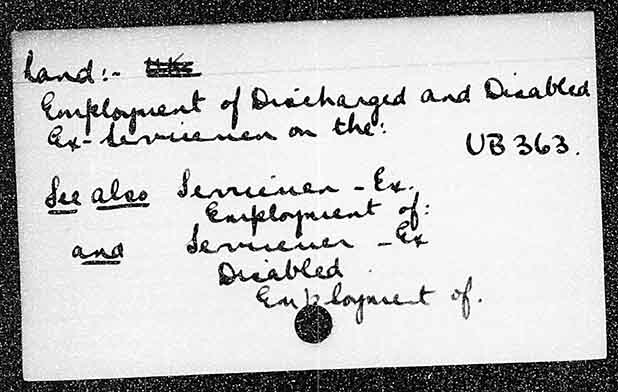 Land:-
Employment of Discharged and Disabled
Ex-Servicemen on the:
UB 363.
See also Servicemen - Ex.
Employment of:
and Servicemen - Ex
Disabled
Employment of.